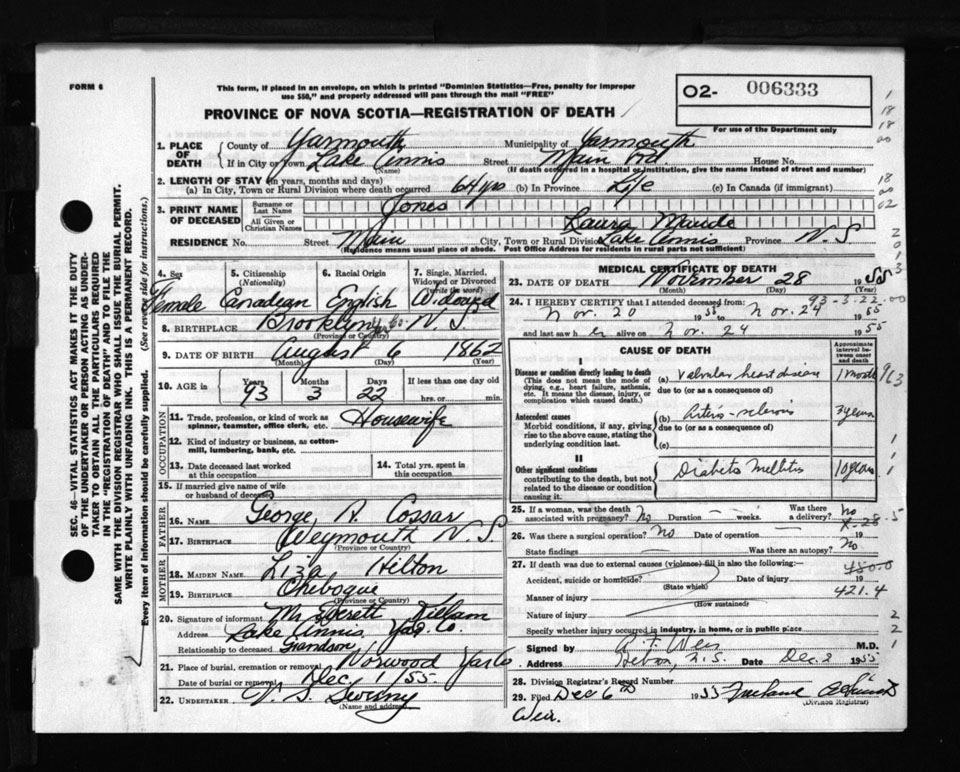 FORM 6
This form, if placed in an envelope, on which is printed "Dominion Statistics—Free, penalty for improper
use $50," and properly addressed will pass through the mail "FREE"
PROVINCE OF NOVA SCOTIA—REGISTRATION OF DEATH
O2- 006333
For use of the Department only
1. PLACE OF DEATH
County of Yarmouth Municipality of Yarmouth
If in City or Town Lake Annis (Name) Street Main Rd House No.
(If death occurred in a hospital or institution, give the name instead of street and number)
2. LENGTH OF STAY (in years, months and days)
(a) In City, Town or Rural Division where death occurred 64 yrs (b) in Province Life (c) In Canada (if immigrant)
3. PRINT NAME OF DECEASED
Surname or Last Name Jones
All Given or Christian Names Laura Maude
RESIDENCE No. Street Main City, Town or Rural Division Lake Annis Province N.S.
(Residence means usual place of abode. Post Office Address for residents in rural parts not sufficient)
4. Sex Female
5. Citizenship (Nationality) Canadian
6. Racial Origin English
7. Single, Married, Widowed or Divorced (write the word) Widowed
8. BIRTHPLACE Brooklyn Yar Co. N.S.
(Province or Country)
9. DATE OF BIRTH August 6 1862
(Month) (Day) (Year)
10. AGE in Years 93 Months 3 Days 22 If less than one day old hrs. or min.
OCCUPATION
11. Trade, profession, or kind of work as spinner, teamster, office clerk, etc. Housewife
12. Kind of industry or business, as cotton-mill, lumbering, bank, etc.
13. Date deceased last worked at this occupation
14. Total yrs. spent in this occupation
15. If married give name of wife or husband of deceased
FATHER
16. NAME George A. Cossar
17. BIRTHPLACE Weymouth N.S.
(Province or Country)
MOTHER
18. MAIDEN NAME Liza Hilton
19. BIRTHPLACE Chebogue
(Province or Country)
20. Signature of informant Mr Everett
Address Lake Annis, Yar. Co.
Relationship to deceased Grandson
21. Place of burial, cremation or removal Norwood Yar Co
Date of burial or removal Dec 1/55
22. UNDERTAKER V. S. Sweeny
(Name and address)
MEDICAL CERTIFICATE OF DEATH
23. DATE OF DEATH November 28 1955
(Month) (Day)
24. I HEREBY CERTIFY that I attended deceased from: 93-3-22-00
Nov. 20 1955 to Nov. 24 1955
and last saw her alive on Nov. 24 1955
I
CAUSE OF DEATH
Approximate interval between onset and death
Disease or condition directly leading to death
(This does not mean the mode of dying, e.g., heart failure, asthenia, etc. It means the disease, injury, or complication which caused death.)
(a) Valvular heart disease 1 month 963
due to (or as a consequence of)
Antecedent causes
Morbid conditions, if any, giving rise to the above cause, stating the underlying condition last.
(b) Arterio-sclerosis 3 years
due to (or as a consequence of)
(c)
II
Other significant conditions
contributing to the death, but not related to the disease or condition causing it.
Diabetes Mellitus 10 years
25. If a woman, was the death associated with pregnancy? No Duration — weeks. Was there a delivery? No
X-28-5
26. Was there a surgical operation? No Date of operation — 19
State findings — Was there an autopsy? No
27. If death was due to external causes (violence) fill in also the following:—
Accident, suicide or homicide? (State which) Date of injury 19
480.0
421.4
Manner of injury
(How sustained)
Nature of injury
Specify whether injury occurred in industry, in home, or in public place
Signed by A. F. Weir M.D.
Address Hebron, N.S. Date Dec. 2 1955
28. Division Registrar's Record Number
29. Filed Dec 6th 1955
(Division Registrar)
Weir.
SEC. 46—VITAL STATISTICS ACT MAKES IT THE DUTY
OF THE UNDERTAKER OR PERSON ACTING AS UNDER-
TAKER TO OBTAIN ALL THE PARTICULARS REQUIRED
IN THE "REGISTRATION OF DEATH" AND TO FILE THE
SAME WITH THE DIVISION REGISTRAR WHO SHALL ISSUE THE BURIAL PERMIT.
WRITE PLAINLY WITH UNFADING INK. THIS IS A PERMANENT RECORD.
Every item of information should be carefully supplied. (See reverse side for instructions.)